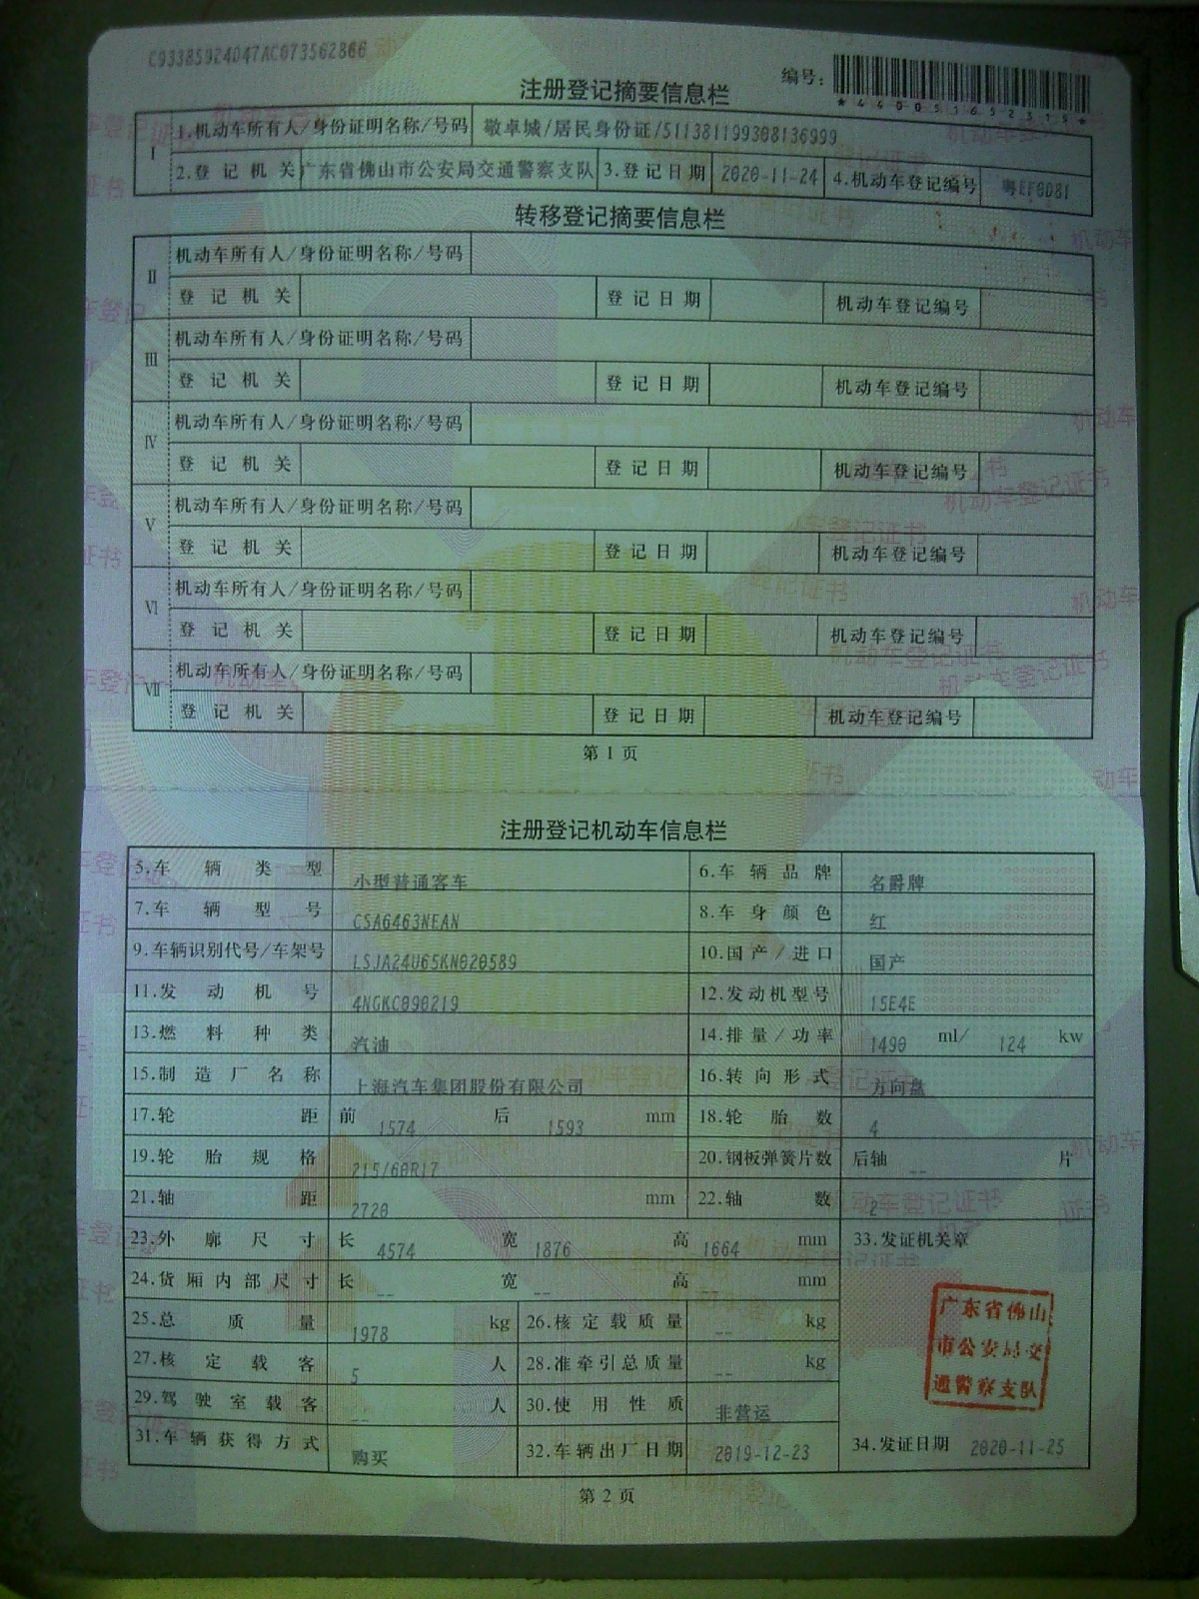 C93385924D47AC073562866
编号:
*440051652315*
注册登记摘要信息栏
I 1.机动车所有人/身份证明名称/号码 敬卓城/居民身份证/511381199308136999
2.登记机关 广东省佛山市公安局交通警察支队 3.登记日期 2020-11-24 4.机动车登记编号 粤EF0D81
转移登记摘要信息栏
II 机动车所有人/身份证明名称/号码
登记机关 登记日期 机动车登记编号
III 机动车所有人/身份证明名称/号码
登记机关 登记日期 机动车登记编号
IV 机动车所有人/身份证明名称/号码
登记机关 登记日期 机动车登记编号
V 机动车所有人/身份证明名称/号码
登记机关 登记日期 机动车登记编号
VI 机动车所有人/身份证明名称/号码
登记机关 登记日期 机动车登记编号
VII 机动车所有人/身份证明名称/号码
登记机关 登记日期 机动车登记编号
第1页
注册登记机动车信息栏
5.车辆类型 小型普通客车 6.车辆品牌 名爵牌
7.车辆型号 CSA6463NEAN 8.车身颜色 红
9.车辆识别代号/车架号 LSJA24U65KN020589 10.国产/进口 国产
11.发动机号 4NGKC090219 12.发动机型号 15E4E
13.燃料种类 汽油 14.排量/功率 1490 ml/ 124 kw
15.制造厂名称 上海汽车集团股份有限公司 16.转向形式 方向盘
17.轮距 前 1574 后 1593 mm 18.轮胎数 4
19.轮胎规格 215/60R17 20.钢板弹簧片数 后轴 -- 片
21.轴距 2720 mm 22.轴数 2
23.外廓尺寸 长 4574 宽 1876 高 1664 mm 33.发证机关章
24.货厢内部尺寸 长 -- 宽 -- 高 mm
25.总质量 1978 kg 26.核定载质量 -- kg
27.核定载客 5 人 28.准牵引总质量 -- kg
29.驾驶室载客 -- 人 30.使用性质 非营运
31.车辆获得方式 购买 32.车辆出厂日期 2019-12-23 34.发证日期 2020-11-25
广东省佛山
市公安局交
通警察支队
第2页